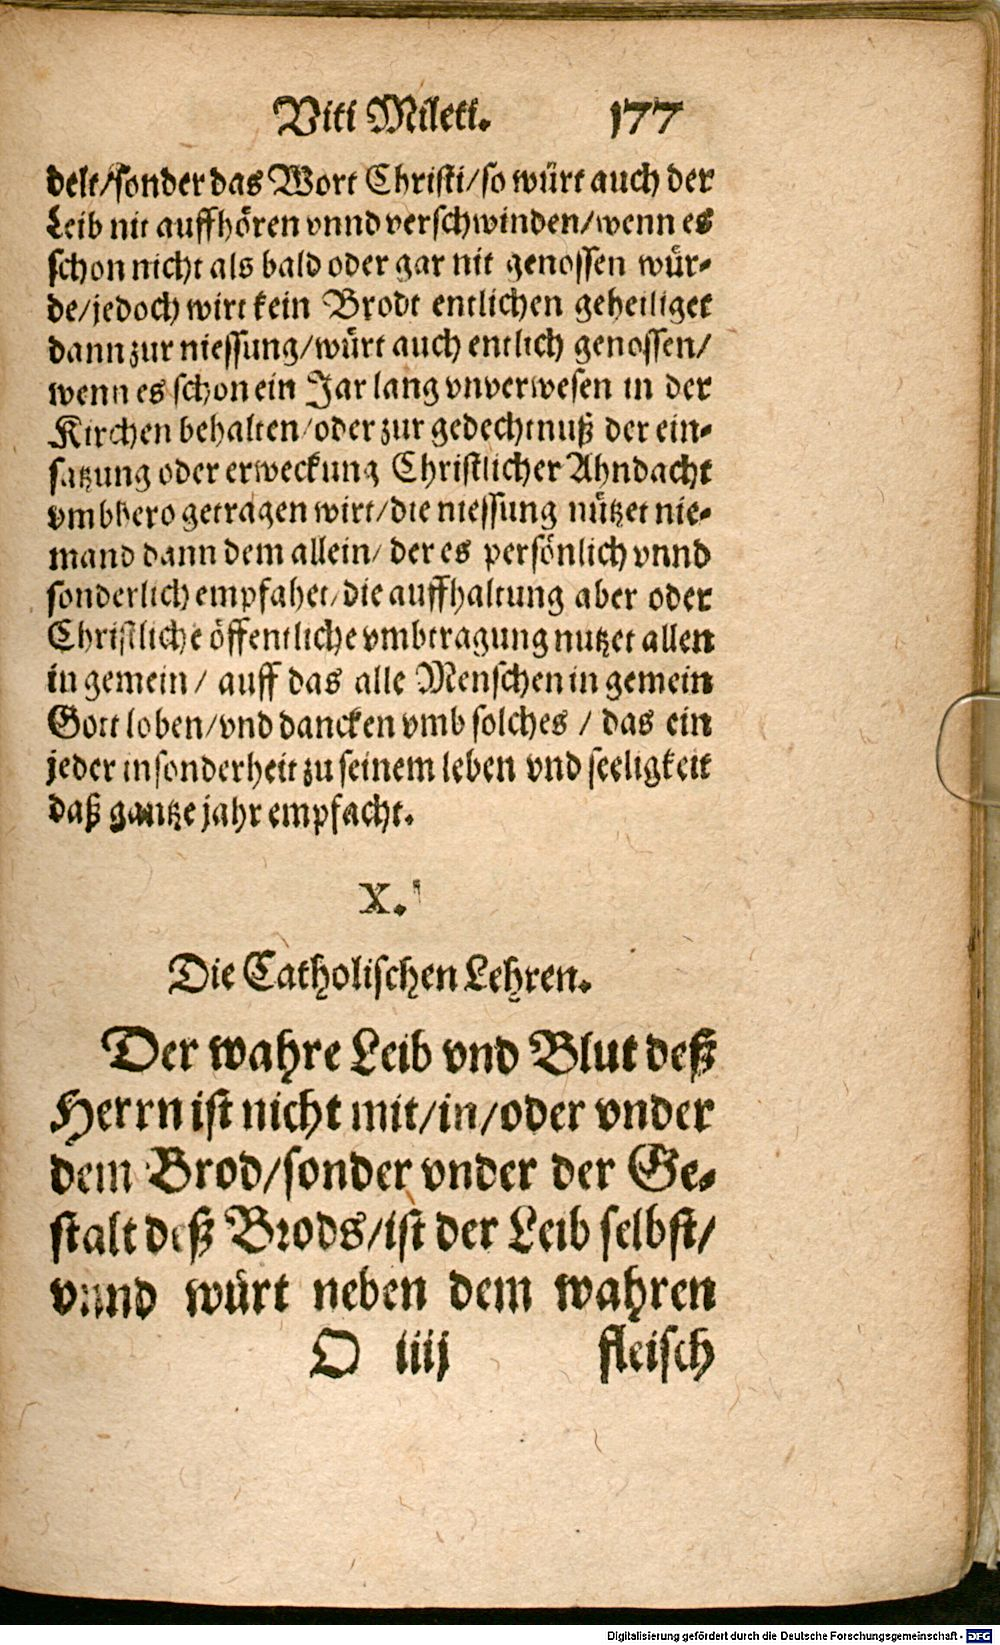 Viti Mileti. 177
delt/sonder das Wort Christi/so würt auch der
Leib nit auffhören vnnd verschwinden/wenn es
schon nicht als bald oder gar nit genossen wür-
de/jedoch wirt kein Brodt entlichen geheiliget
dann zur niessung/würt auch entlich genossen/
wenn es schon ein Jar lang vnverwesen in der
Kirchen behalten/oder zur gedechtnuß der ein-
satzung oder erweckung Christlicher Ahndacht
vmbhero getragen wirt/die niessung nützet nie-
mand dann dem allein/der es persönlich vnnd
sonderlich empfahet/die auffhaltung aber oder
Christliche öffentliche vmbtragung nutzet allen
in gemein / auff das alle Menschen in gemein
Gott loben/vnd dancken vmb solches / das ein
jeder insonderheit zu seinem leben vnd seeligkeit
daß gantze jahr empfacht.
X.
Die Catholischen Lehren.
Der wahre Leib vnd Blut deß
Herrn ist nicht mit/in/oder vnder
dem Brod/sonder vnder der Ge-
stalt deß Brods/ist der Leib selbst/
vnnd würt neben dem wahren
O iiij fleisch
Digitalisierung gefördert durch die Deutsche Forschungsgemeinschaft - DFG